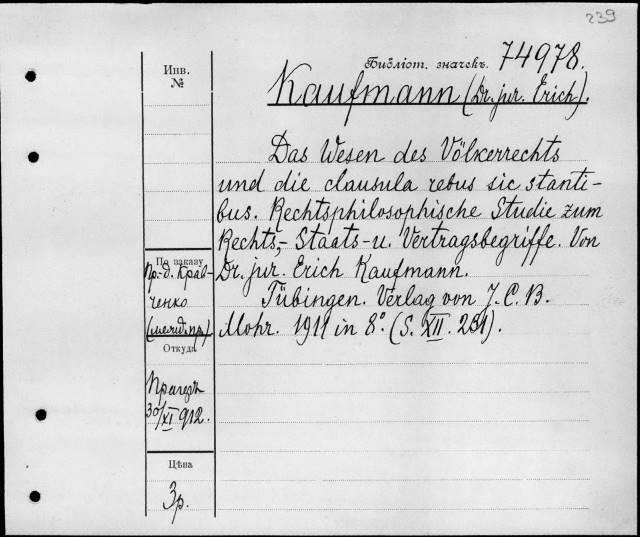 239
Библіот. значекъ. 74978.
Инв.
№
Kaufmann (Dr. jur. Erich).
Das Wesen des Völkerrechts
und die clausula rebus sic stanti-
bus. Rechtsphilosophische Studie zum
Rechts,- Staats- u. Vertragsbegriffe. Von
Dr. jur. Erich Kaufmann.
Tübingen. Verlag von J. C. B.
Mohr. 1911 in 8°. (S. XII. 231).
По заказу
Пр.-д. Крав-
ченко
Откуда
Прагеръ
30/XI 912.
Цѣна
3 р.